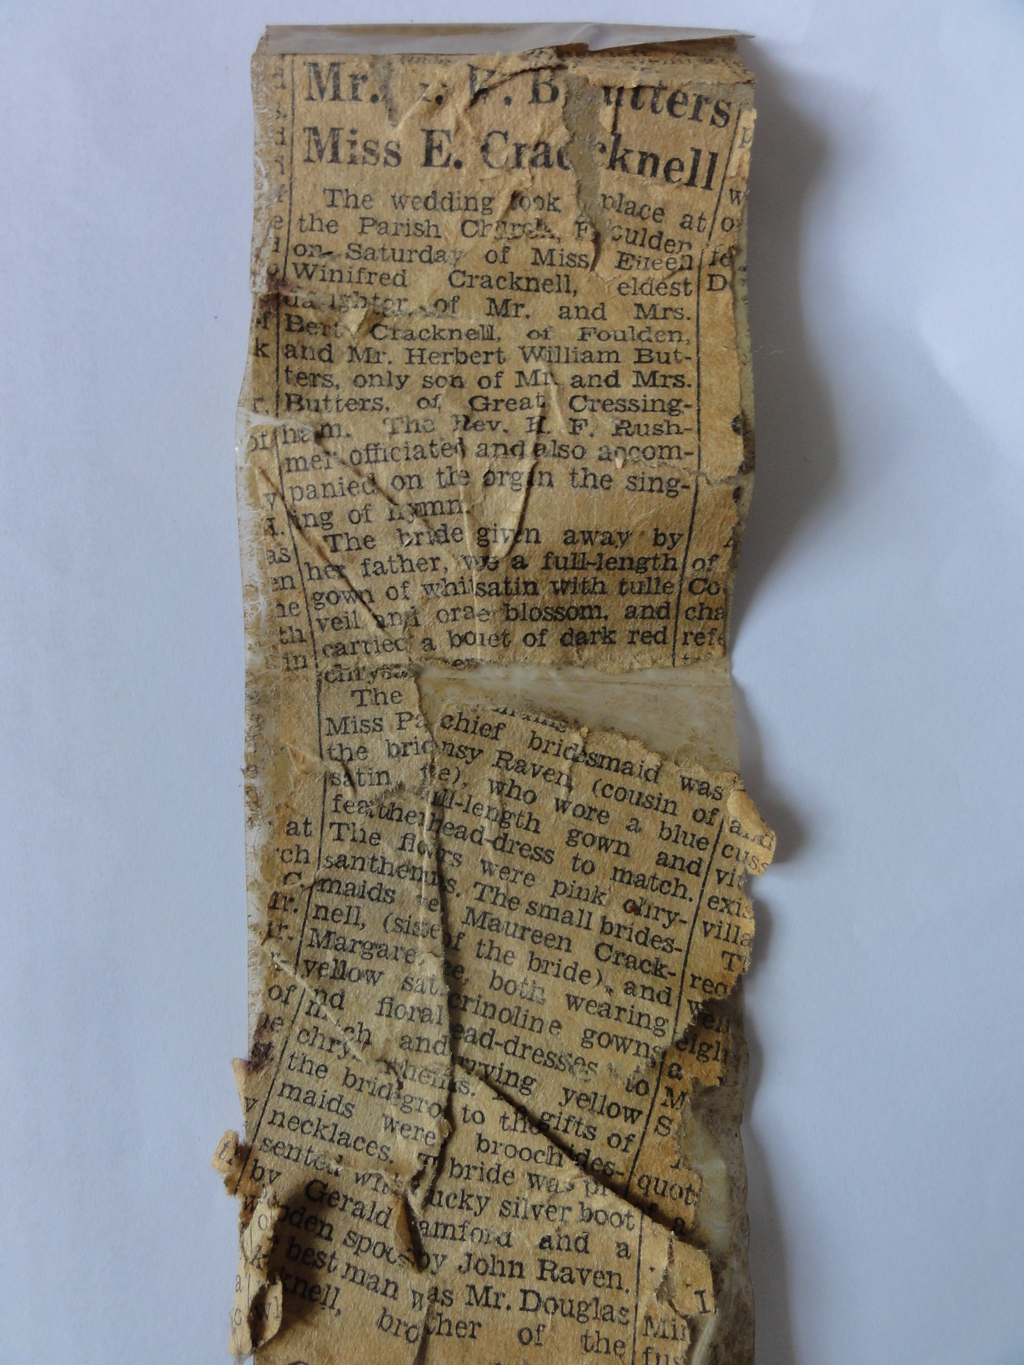 Mr. W. B utters
Miss E. Crac cknell
The wedding took place at
the Parish Church, F oulden
on Saturday of Miss Eileen
Winifred Cracknell, eldest
daughter of Mr. and Mrs.
Bert Cracknell, of Foulden,
and Mr. Herbert William But-
ters, only son of Mr. and Mrs.
Butters, of Great Cressing-
ham. The Rev. H. F. Rush-
mer officiated and also accom-
panied on the organ the sing-
ing of hymn.
The bride given away by
her father, a full-length
gown of whi satin with tulle
veil and ora e blossom, and
carried a bo uet of dark red
chrysa
The
chief bridesmaid was
Miss Pa nsy Raven (cousin of
the brid e), who wore a blue
satin full-length gown and
feather head-dress to match.
The flo ers were pink chry-
santhem s. The small brides-
maids Maureen Crack-
nell, (siste of the bride), and
Margare ce, both wearing
yellow sat crinoline gowns
nd floral ead-dresses to
m tch and rrying yellow
chrys thems.
the brid gro to the gifts of
maids were brooch des-
necklaces. T bride was pr
sented with ucky silver boot
by Gerald amford and a
wooden spoo by John Raven.
best man was Mr. Douglas
knell, bro ther of the
k
of
as
en
he
th
in
at
ch
C.
of
w
D
of
Co
cha
refe
and
cuss
vi
exis
villa
T
rec
well
eigh
a
M
S.
quot
Min
fus